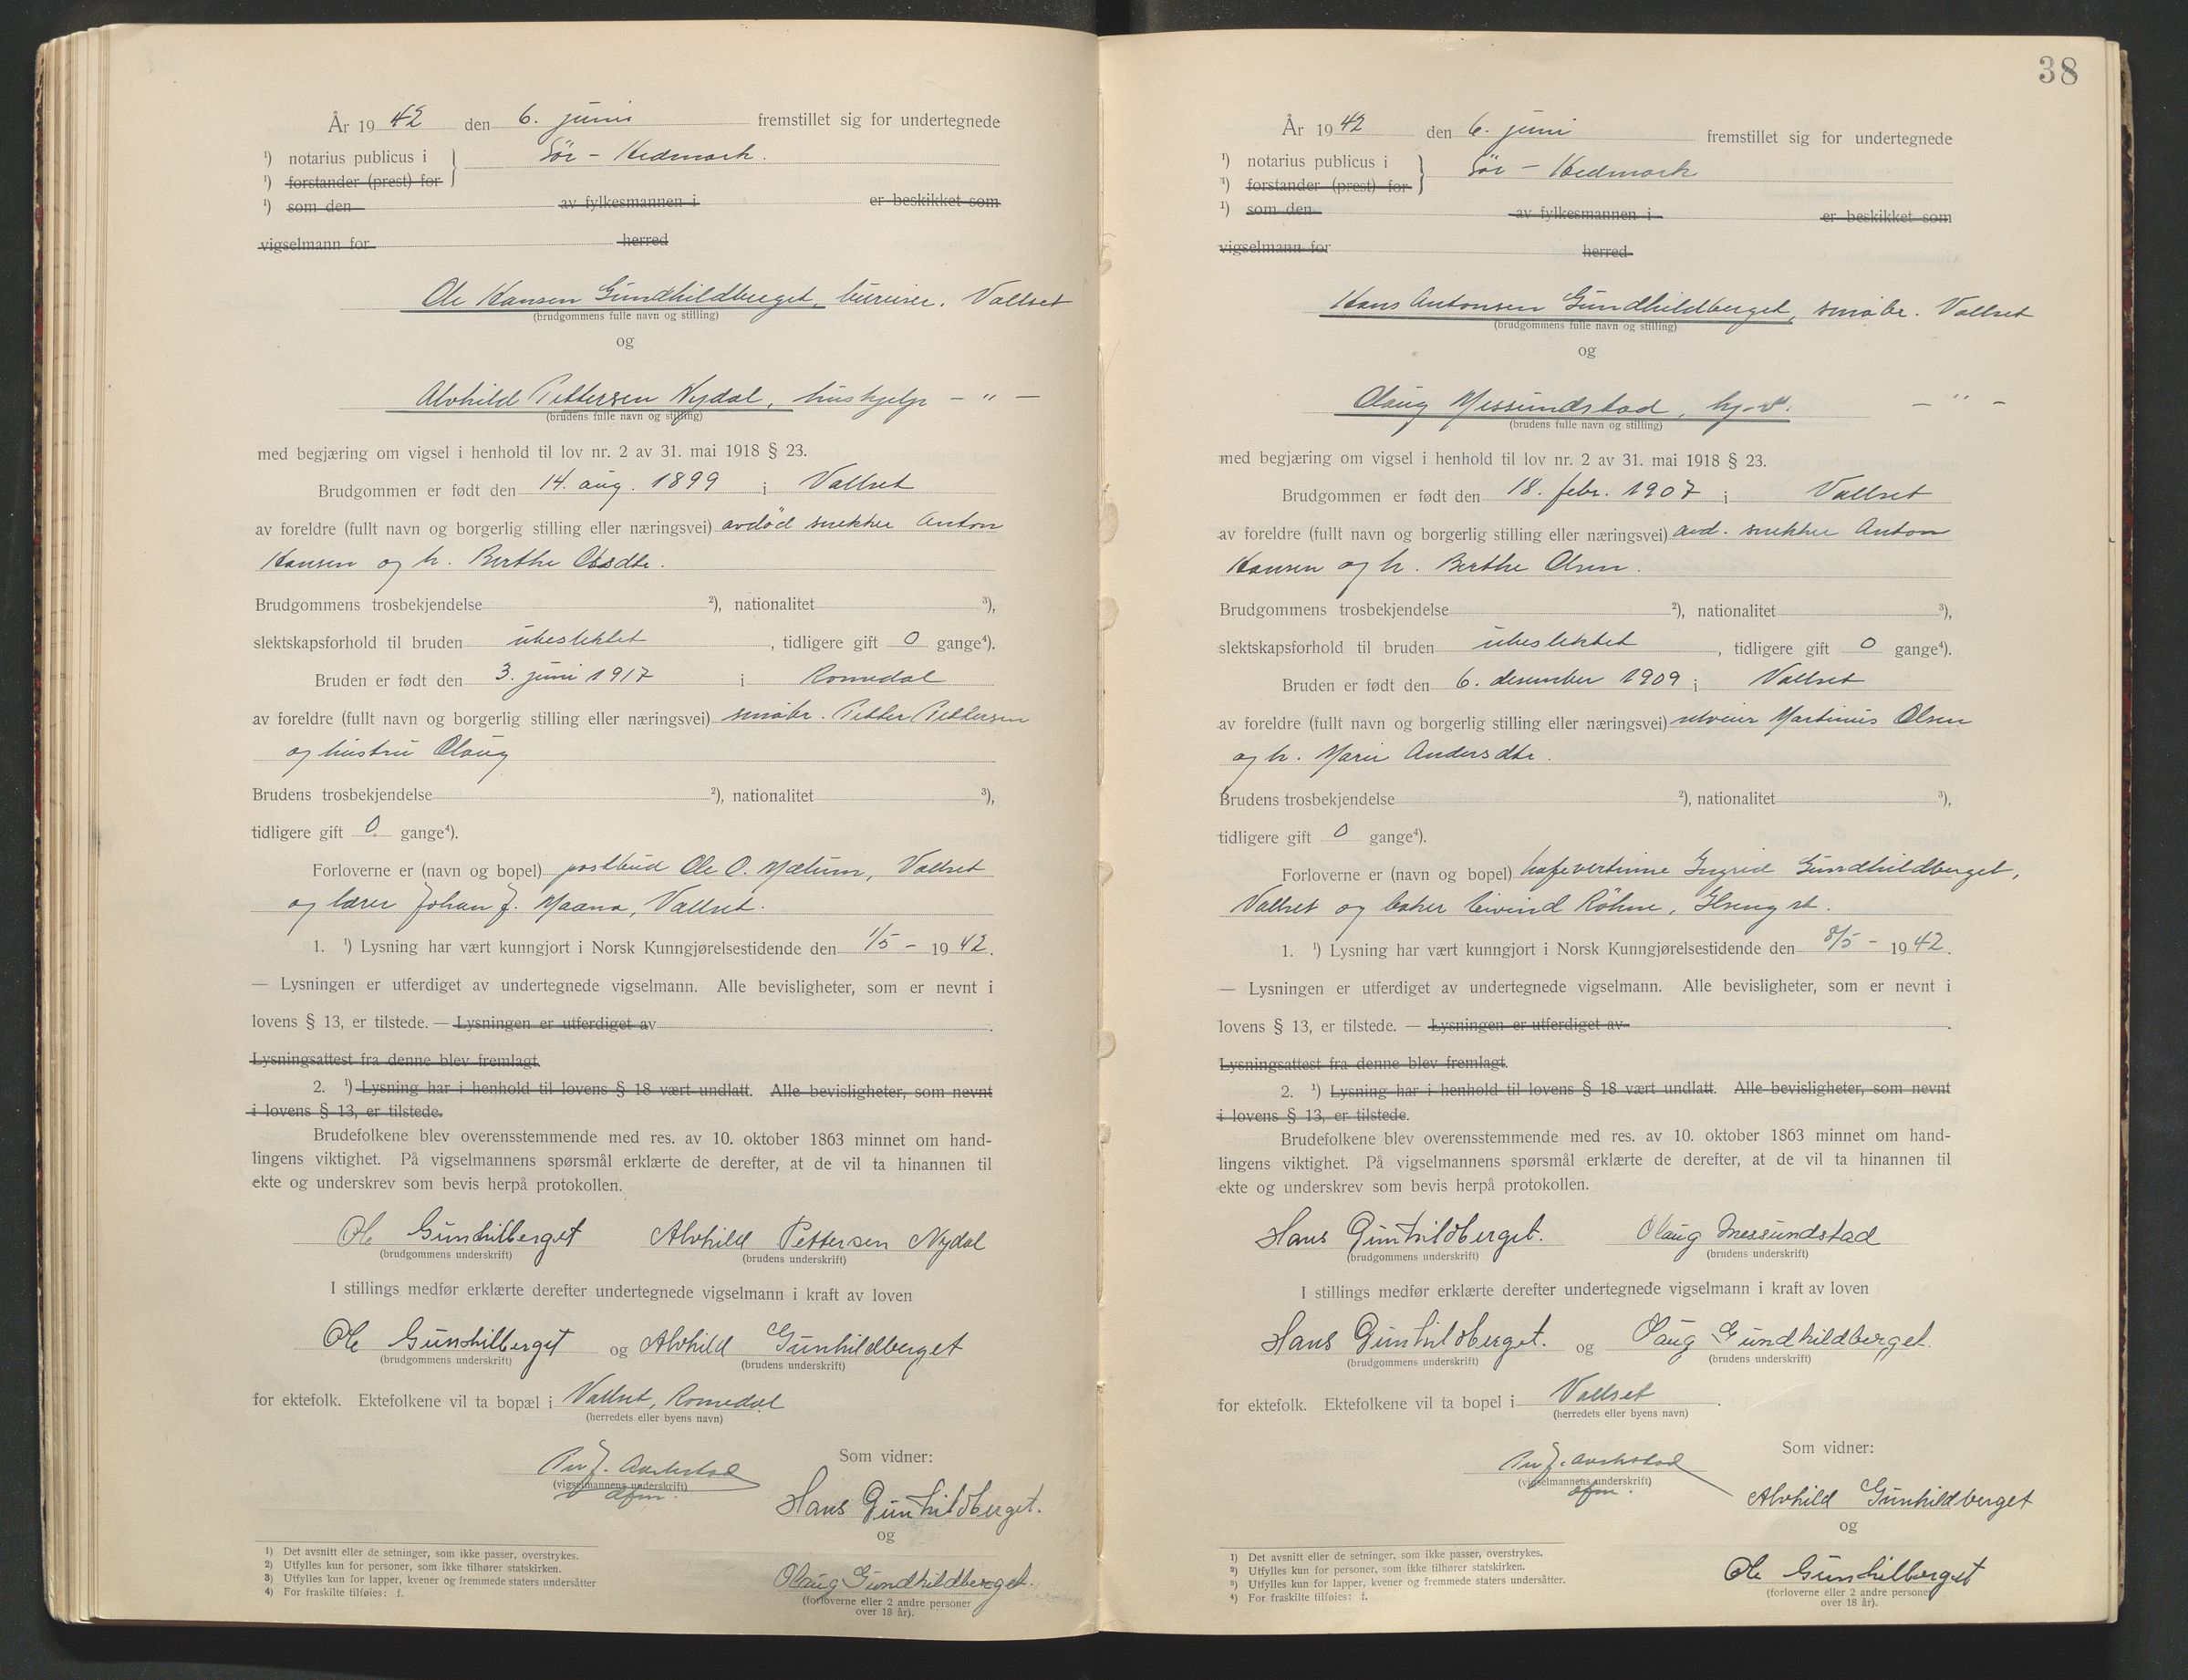 År 1942 den 6. juni fremstillet sig for undertegnede
¹) notarius publicus i } Sør - Hedmark.
¹) forstander (prest) for
¹) som den av fylkesmannen i er beskikket som
vigselmann for herred
Ole Hansen Gundhildberget, bureiser. Vallset
(brudgommens fulle navn og stilling)
og
Alvhild Pettersen Nydal, hushjelp - " -
(brudens fulle navn og stilling)
med begjæring om vigsel i henhold til lov nr. 2 av 31. mai 1918 § 23.
Brudgommen er født den 14. aug. 1899 i Vallset
av foreldre (fullt navn og borgerlig stilling eller næringsvei) avdød snekker Anton
Hansen og h. Berthe Olsdtr.
Brudgommens trosbekjendelse ²), nationalitet ³),
slektskapsforhold til bruden ubeslektet, tidligere gift 0 gange⁴).
Bruden er født den 3. juni 1917 i Romedal
av foreldre (fullt navn og borgerlig stilling eller næringsvei) småbr. Petter Pettersen
og hustru Olaug
Brudens trosbekjendelse ²), nationalitet ³),
tidligere gift 0 gange⁴).
Forloverne er (navn og bopel) postbud Ole O. Mælum, Vallset
og lærer Johan J. Maana, Vallset.
1. ¹) Lysning har vært kunngjort i Norsk Kunngjørelsestidende den 1/5 - 1942.
— Lysningen er utferdiget av undertegnede vigselmann. Alle bevisligheter, som er nevnt i
lovens § 13, er tilstede. — Lysningen er utferdiget av .
Lysningsattest fra denne blev fremlagt.
2. ¹) Lysning har i henhold til lovens § 18 vært undlatt. Alle bevisligheter, som nevnt
i lovens § 13, er tilstede.
Brudefolkene blev overensstemmende med res. av 10. oktober 1863 minnet om hand-
lingens viktighet. På vigselmannens spørsmål erklærte de derefter, at de vil ta hinannen til
ekte og underskrev som bevis herpå protokollen.
Ole Gunhilberget Alvhild Pettersen Nydal
(brudgommens underskrift) (brudens underskrift)
I stillings medfør erklærte derefter undertegnede vigselmann i kraft av loven
Ole Gunhilberget og Alvhild Gunhildberget
(brudgommens underskrift) (brudens underskrift)
for ektefolk. Ektefolkene vil ta bopæl i Vallset, Romedal
(herredets eller byens navn)
Som vidner:
Per J. Aarkstad
(vigselmannens underskrift)
dfm.
Hans Gunhildberget.
og
Olaug Gundhildberget.
(forloverne eller 2 andre personer
over 18 år).
¹) Det avsnitt eller de setninger, som ikke passer, overstrykes.
²) Utfylles kun for personer, som ikke tilhører statskirken.
³) Utfylles kun for lapper, kvener og fremmede staters undersåtter
⁴) For fraskilte tilføies: f.
38
År 1942 den 6. juni fremstillet sig for undertegnede
¹) notarius publicus i } Sør - Hedmark
¹) forstander (prest) for
¹) som den av fylkesmannen i er beskikket som
vigselmann for herred
Hans Antonsen Gundhildberget, småbr. Vallset
(brudgommens fulle navn og stilling)
og
Olaug Messundstad, hj-v. - " -
(brudens fulle navn og stilling)
med begjæring om vigsel i henhold til lov nr. 2 av 31. mai 1918 § 23.
Brudgommen er født den 18. febr. 1907 i Vallset
av foreldre (fullt navn og borgerlig stilling eller næringsvei) avd. snekker Anton
Hansen og h. Berthe Olsen.
Brudgommens trosbekjendelse ²), nationalitet ³),
slektskapsforhold til bruden ubeslektet, tidligere gift 0 gange⁴).
Bruden er født den 6. desember 1909 i Vallset
av foreldre (fullt navn og borgerlig stilling eller næringsvei) Martinius Olsen
og h. Marie Andersdtr.
Brudens trosbekjendelse ²), nationalitet ³),
tidligere gift 0 gange⁴).
Forloverne er (navn og bopel) kafevertinne Ingrid Gundhildberget,
Vallset og baker Eivind Röhne, Ilseng st.
1. ¹) Lysning har vært kunngjort i Norsk Kunngjørelsestidende den 8/5 - 1942.
— Lysningen er utferdiget av undertegnede vigselmann. Alle bevisligheter, som er nevnt i
lovens § 13, er tilstede. — Lysningen er utferdiget av .
Lysningsattest fra denne blev fremlagt.
2. ¹) Lysning har i henhold til lovens § 18 vært undlatt. Alle bevisligheter, som nevnt
i lovens § 13, er tilstede.
Brudefolkene blev overensstemmende med res. av 10. oktober 1863 minnet om hand-
lingens viktighet. På vigselmannens spørsmål erklærte de derefter, at de vil ta hinannen til
ekte og underskrev som bevis herpå protokollen.
Hans Gunhildberget. Olaug Messundstad
(brudgommens underskrift) (brudens underskrift)
I stillings medfør erklærte derefter undertegnede vigselmann i kraft av loven
Hans Gunhildberget. og Olaug Gundhildberget.
(brudgommens underskrift) (brudens underskrift)
for ektefolk. Ektefolkene vil ta bopel i Vallset.
(herredets eller byens navn)
Som vidner:
Per J. Aarkstad
(vigselmannens underskrift)
dfm.
Alvhild Gunhildberget
og
Ole Gunhilberget
(forloverne eller 2 andre personer
over 18 år).
¹) Det avsnitt eller de setninger, som ikke passer, overstrykes.
²) Utfylles kun for personer, som ikke tilhører statskirken.
³) Utfylles kun for lapper, kvener og fremmede staters undersåtter.
⁴) For fraskilte tilføies: f.